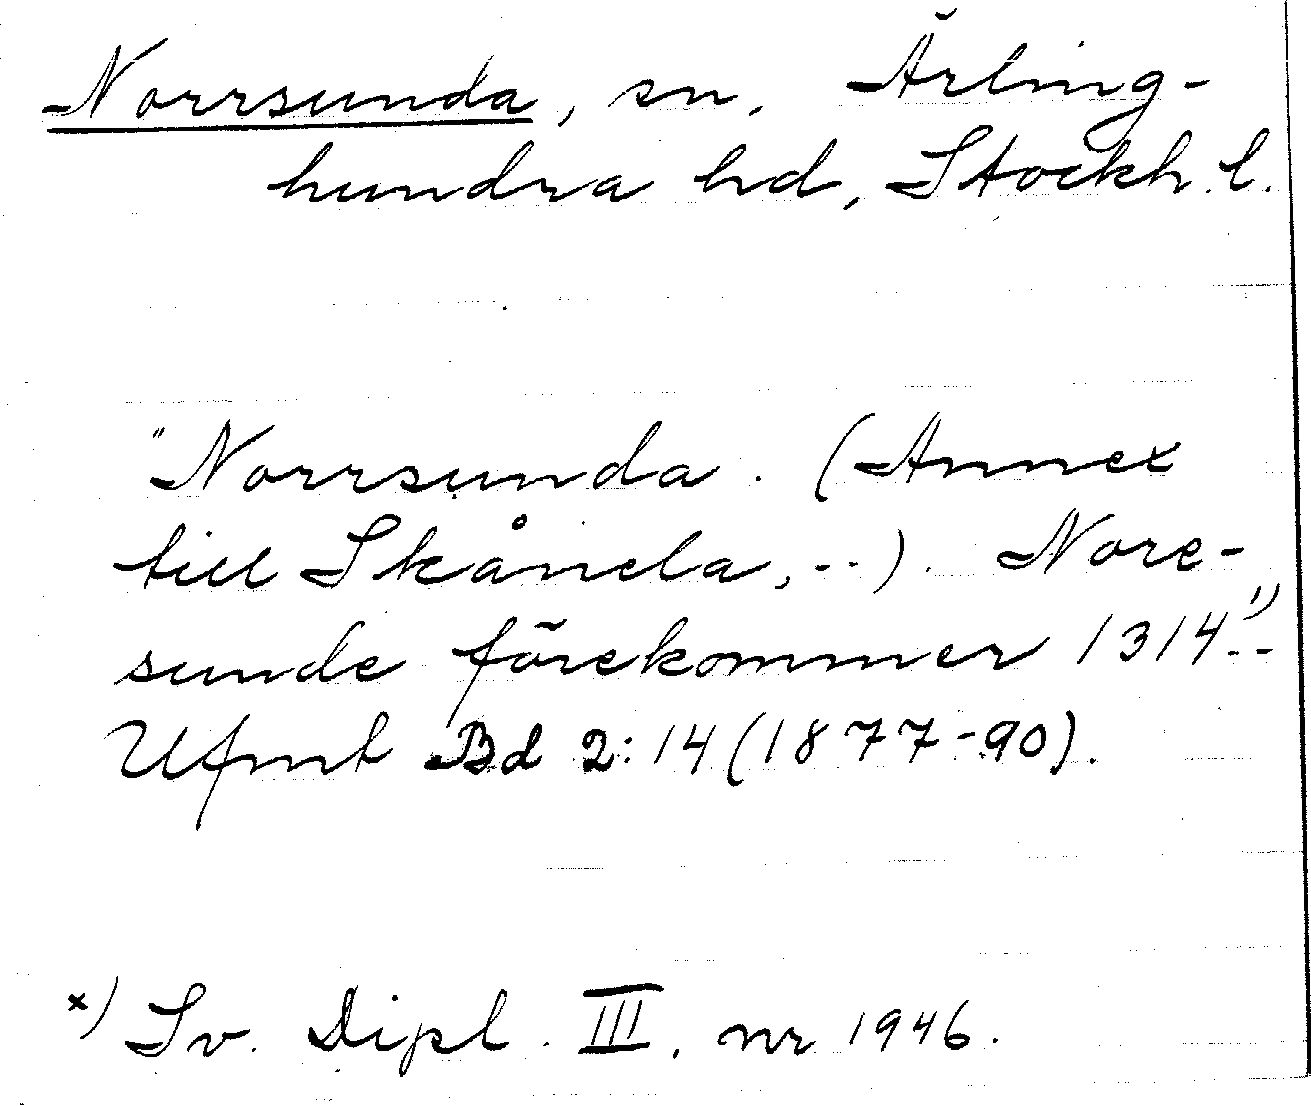 Norrsunda, sn, Ärling-
hundra hd, Stockh. l.
"Norrsunda. (Annex
till Skånela, --). Nore-
sunde förekommer 1314" --
Ufmt Bd 2:14 (1877-90).
x) Sv. Dipl. III, nr 1946.